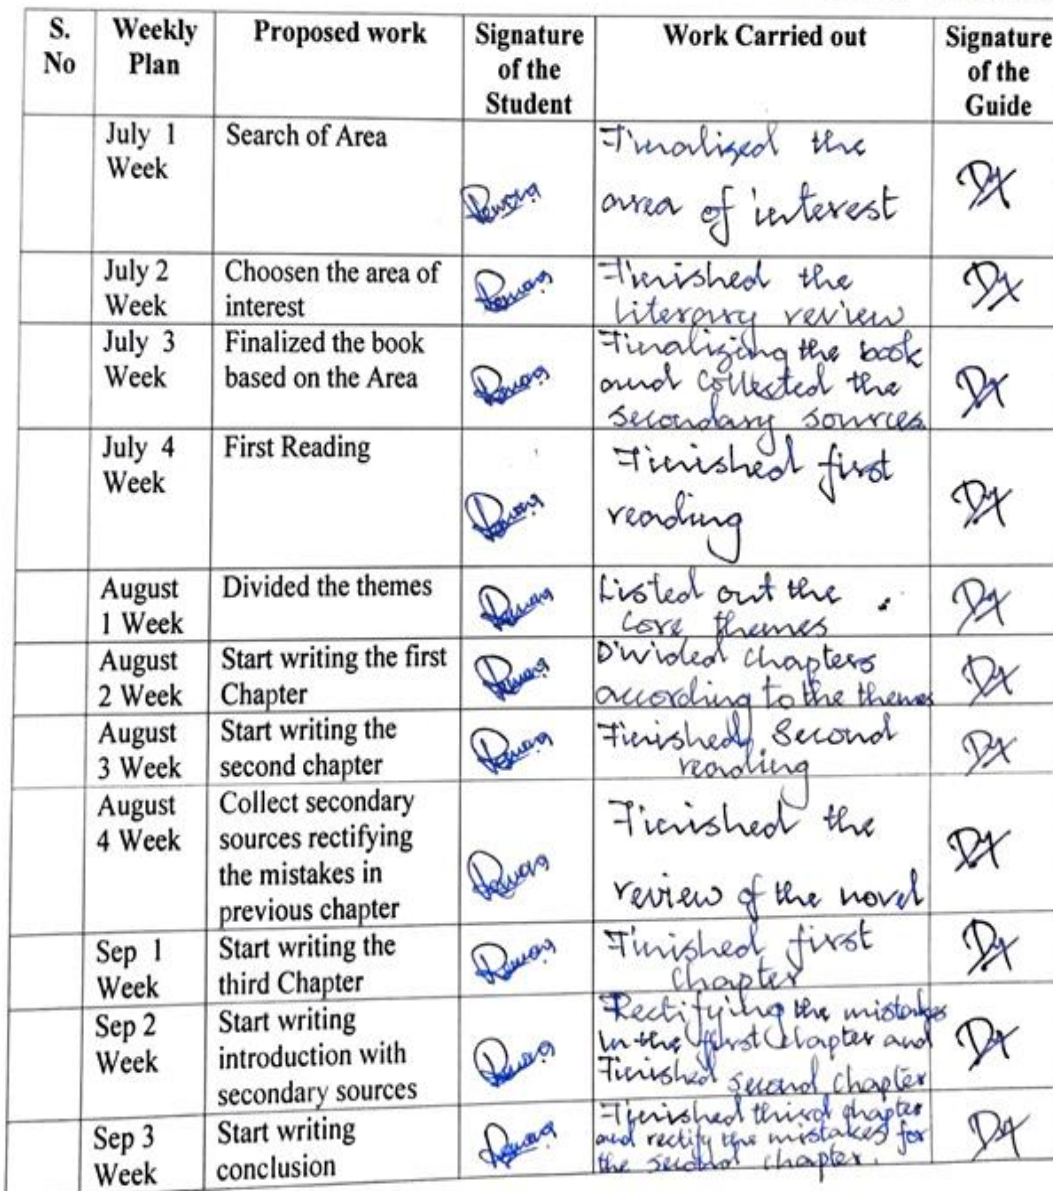 S. No
Weekly Plan
Proposed work
Signature of the Student
Work Carried out
Signature of the Guide
July 1 Week
Search of Area
Finalized the
area of interest
July 2 Week
Choosen the area of
interest
Finished the
literary review
July 3 Week
Finalized the book
based on the Area
Finalizing the book
and Collected the
secondary sources
July 4 Week
First Reading
Finished first
reading
August
1 Week
Divided the themes
Listed out the
core themes
August
2 Week
Start writing the first
Chapter
Divided chapters
according to the themes
August
3 Week
Start writing the
second chapter
Finished Second
reading
August
4 Week
Collect secondary
sources rectifying
the mistakes in
previous chapter
Finished the
review of the novel
Sep 1
Week
Start writing the
third Chapter
Finished first
chapter
Sep 2
Week
Start writing
introduction with
secondary sources
Rectifying the mistakes
in the first chapter and
Finished second chapter
Sep 3
Week
Start writing
conclusion
Finished third chapter
and rectify the mistakes for
the second chapter.